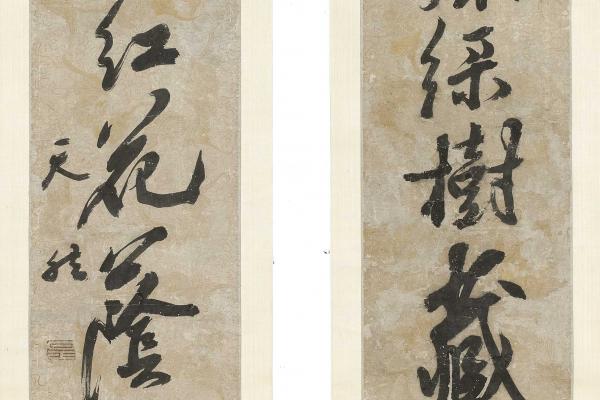 綠樹藏
紅花蔭
天然